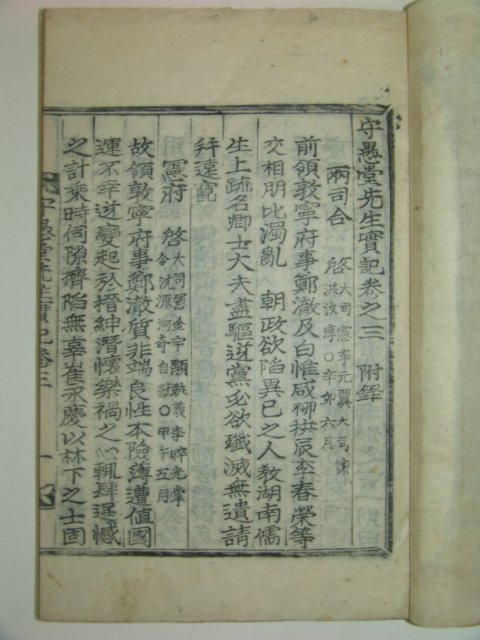 守愚堂先生實記卷之三 附錄
兩司合 啓 大司憲李元翼大司諫洪汝諄○辛卯六月
前領敦寧府事鄭澈及白惟咸柳拱辰李春榮等
交相朋比濁亂 朝政欲陷異己之人敎湖南儒
生上疏名卿士大夫盡驅逆黨必欲殲滅無遺請
幷遠竄
憲府 啓 大司憲金宇顒執義李睟光掌令沈源河奇自獻○甲午五月
故領敦寧府事鄭澈賀非端良性本險薄遭值國
運不幸逆變起於搢紳潛懷樂禍之心輒肆逞憾
之計乘時伺隙擠陷無辜崔永慶以林下之士固
守愚堂先生實記卷三 一